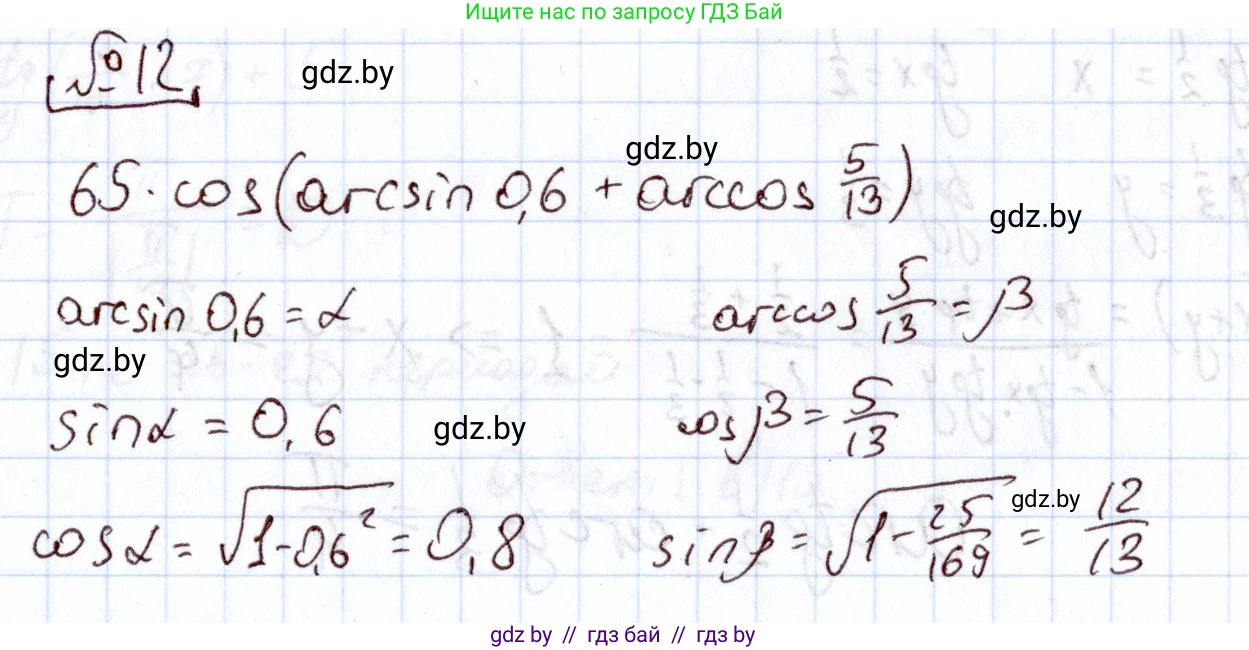 Ищите нас по запросу ГДЗ Бай
№12
gdz.by
gdz.by
65 · cos(arcsin 0,6 + arccos 5/13)
gdz.by
arcsin 0,6 = α
arccos 5/13 = β
gdz.by
sinα = 0,6
gdz.by
cosβ = 5/13
gdz.by
cosα = √(1-0,6²) = 0,8
sinβ = √(1-25/169) = 12/13
gdz.by // гдз бай // гдз by